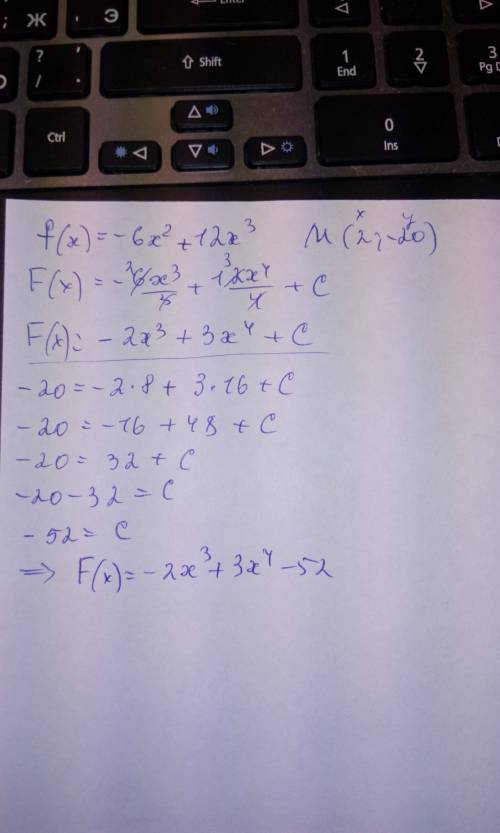 Enter
; Ж ' Э
? ' / .
⇧ Shift
1 End
2
3 Pg D
Ctrl
0 Ins
f(x)=-6x²+12x³ M(2;-20)
x y
F(x)=-6x³/3+12x⁴/4+C
2 3
F(x)=-2x³+3x⁴+C
-20=-2·8+3·16+C
-20=-16+48+C
-20=32+C
-20-32=C
-52=C
⇒ F(x)=-2x³+3x⁴-52